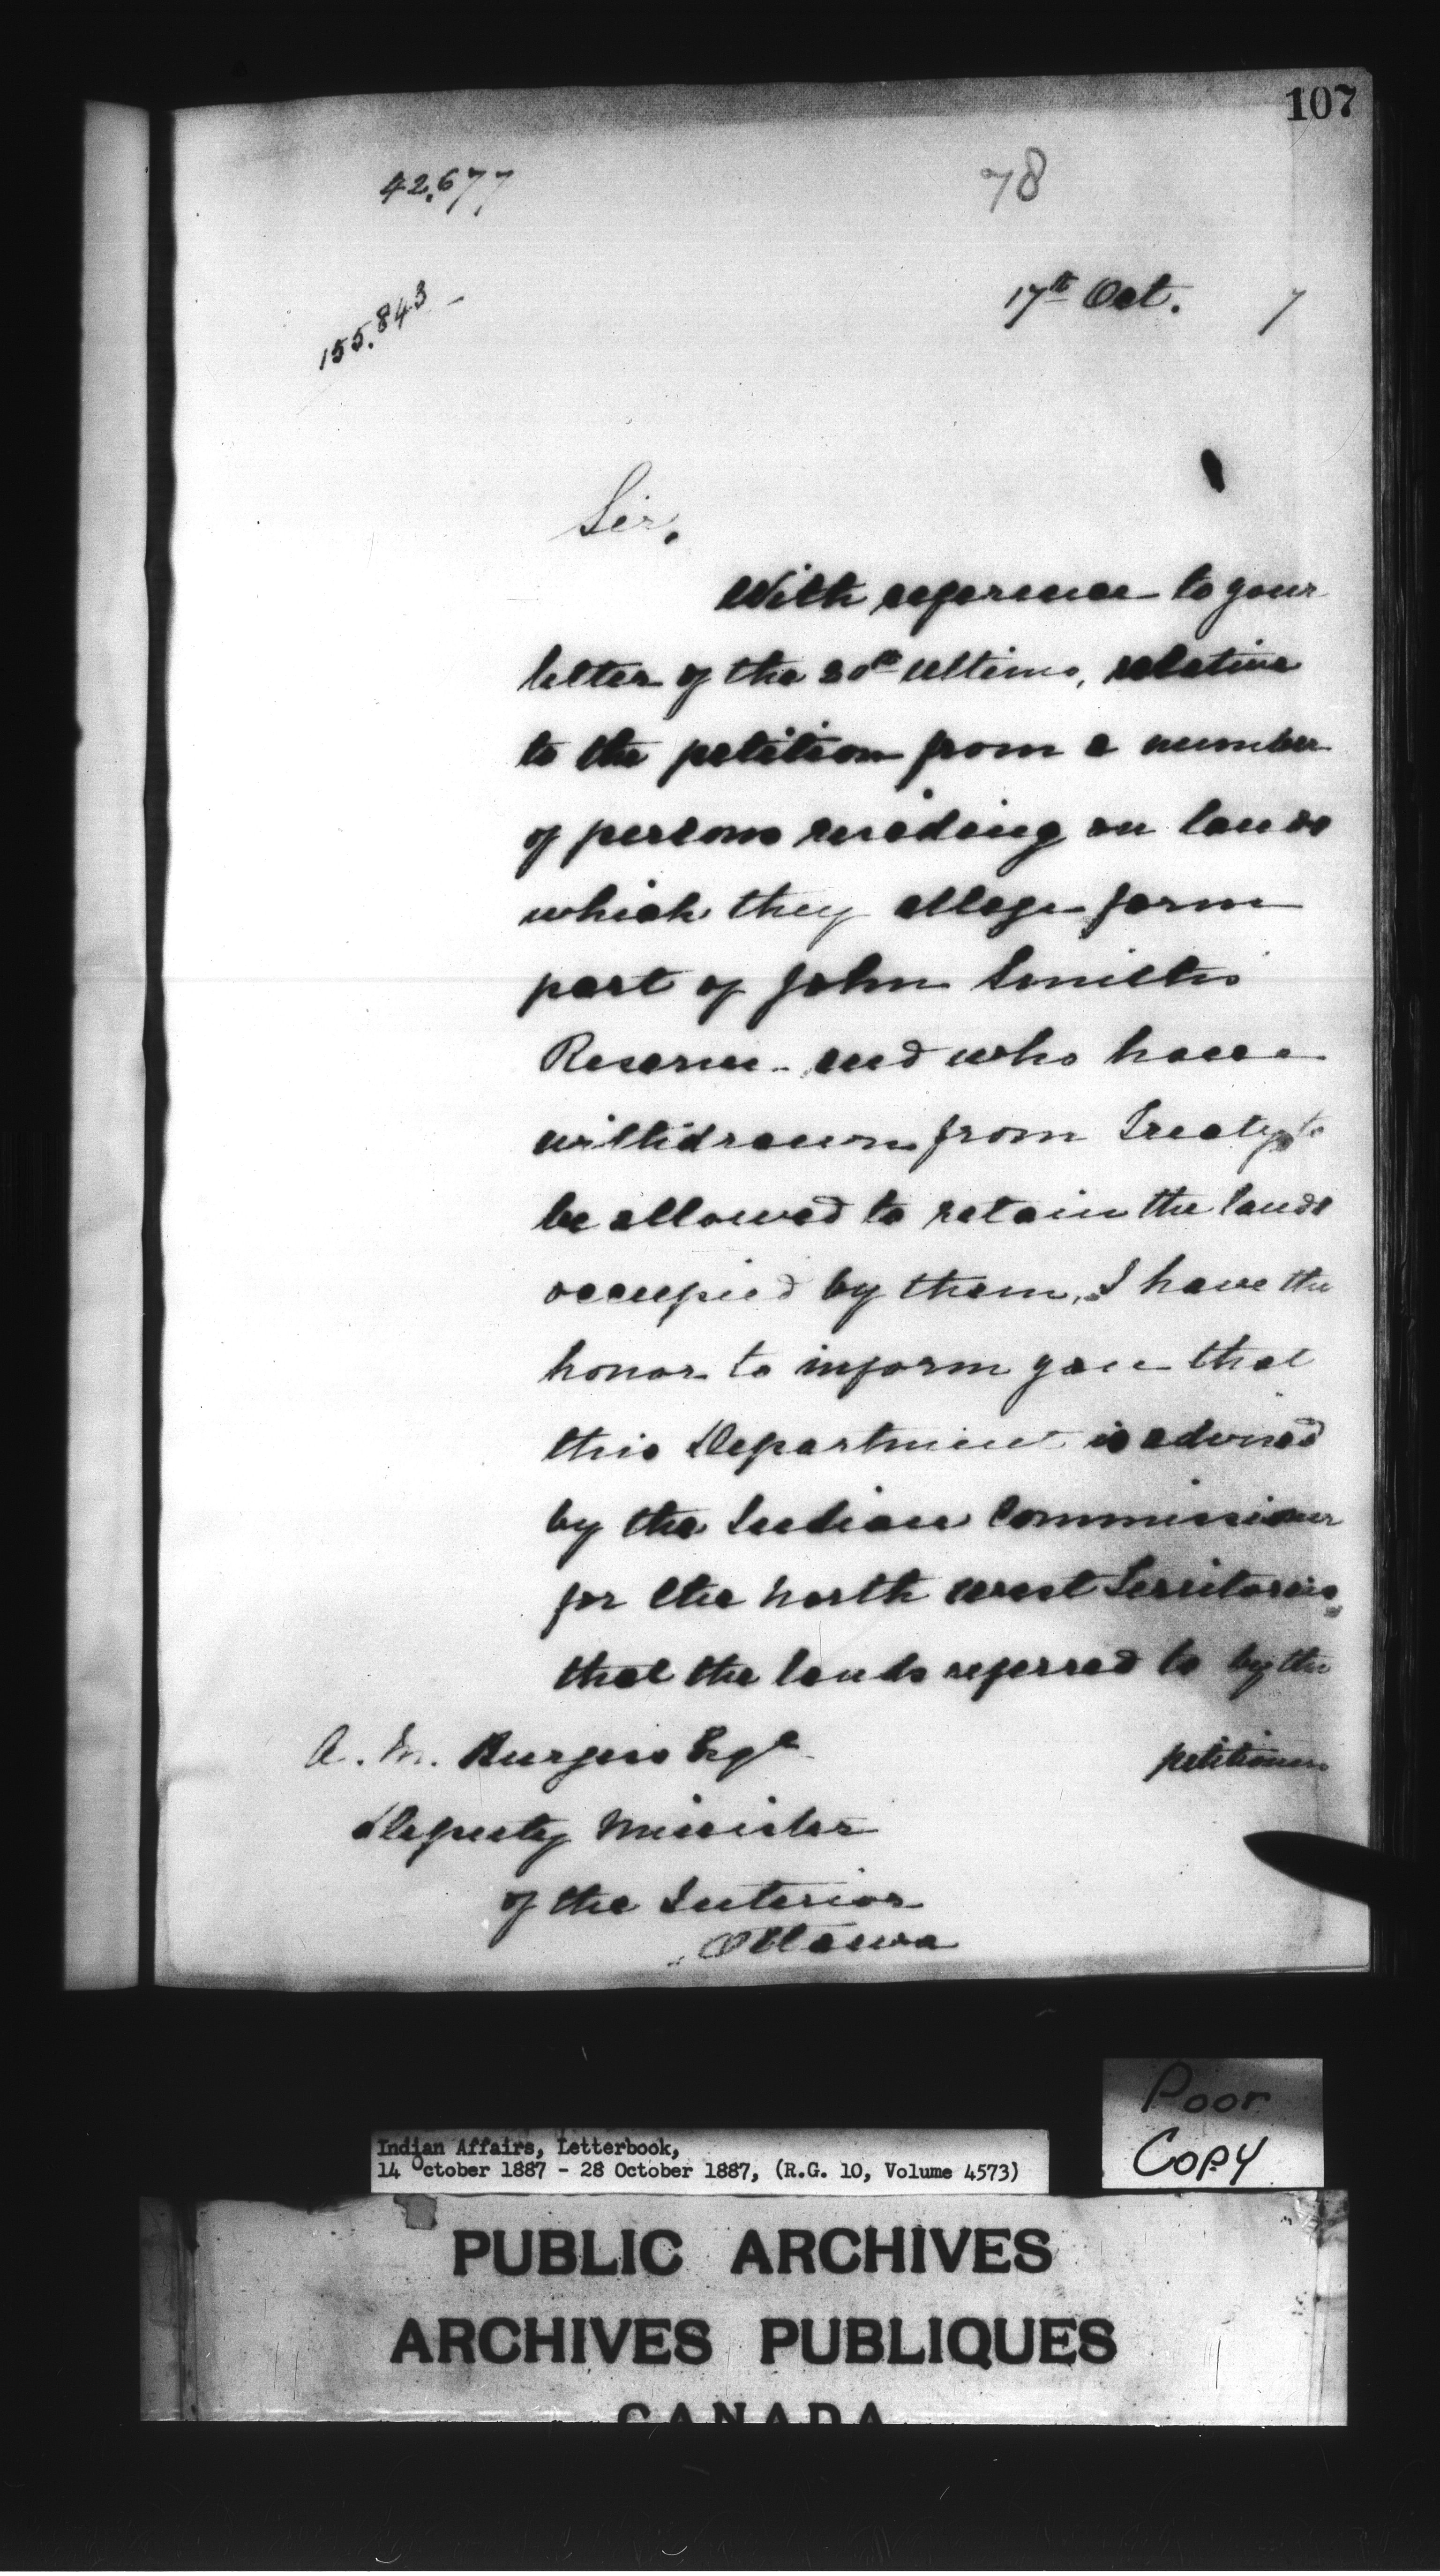 107
42.677
78
155.843 -
17th Oct. 7
Sir,
With reference to your
letter of the 20th ultimo, relative
to the petition from a number
of persons residing on lands
which they allege form
part of John Smith's
Reserve and who have
withdrawn from Treaty, to
be allowed to retain the lands
occupied by them, I have the
honor to inform you that
this Department is advised
by the Indian Commissioner
for the North West Territories,
that the lands referred to by the
petitioners
A. M. Burgess Esqe
Deputy Minister
of the Interior
Ottawa
Poor
Copy
Indian Affairs, Letterbook,
14 October 1887 - 28 October 1887, (R.G. 10, Volume 4573)
PUBLIC ARCHIVES
ARCHIVES PUBLIQUES
CANADA